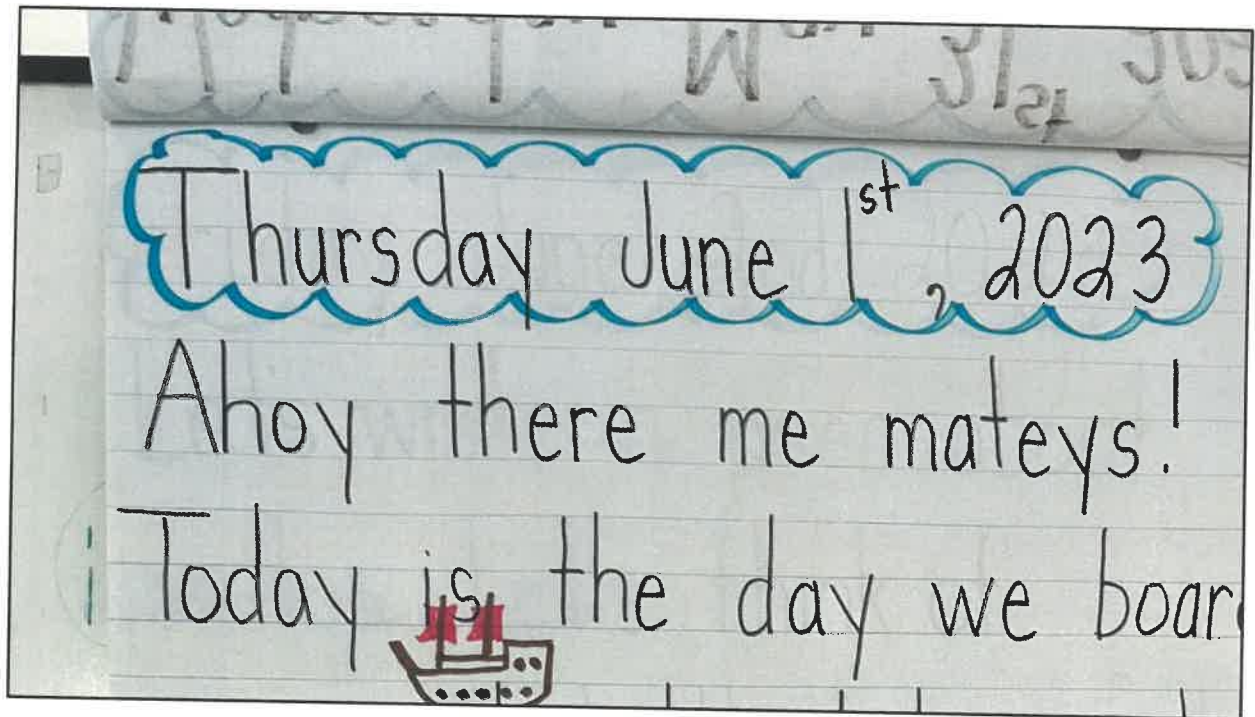 Thursday June 1st, 2023
Ahoy there me mateys!
Today is the day we boar